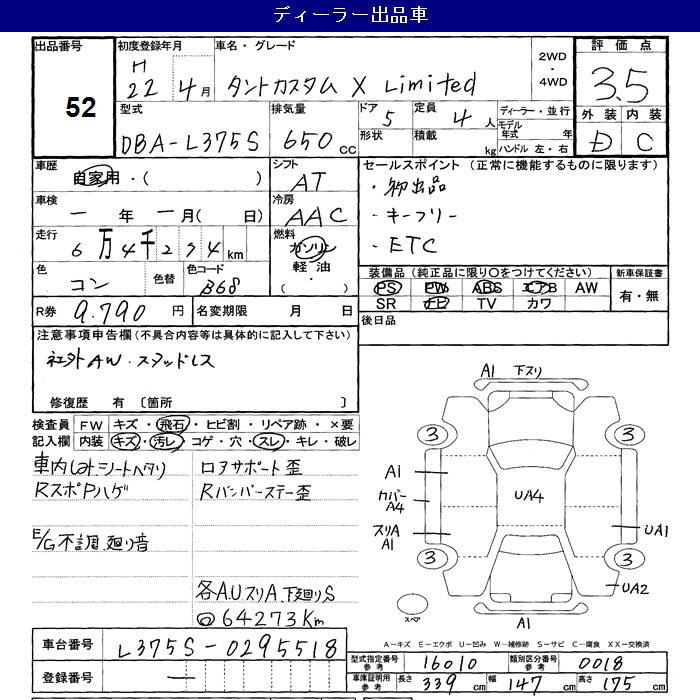 ディーラー出品車
出品番号
52
初度登録年月
H
22年 4月
車名・グレード
タントカスタム X Limited
2WD
・
4WD
評価点
3.5
外装 内装
D C
型式
DBA-L375S
排気量
650cc
ドア
5
形状
定員
4人
積載
kg
ディーラー・並行
モデル年式 年
ハンドル 左・右
車歴
自家用・( )
シフト
AT
車検
一 年 一 月( 日)
冷房
AAC
走行
6万4千274km
燃料
ガソリン
軽油・
( )
色
コン
色替
色コード
B68
R券 9.790円
名変期限 月 日
セールスポイント (正常に機能するものに限ります)
・初出品
・キーフリー
・ETC
装備品(純正品に限り○をつけてください)
PS PW ABS エアB AW
SR ナビ TV カワ
新車保証書
有・無
後日品
注意事項申告欄(不具合内容等は具体的に記入して下さい)
社外AW・スタッドレス
修復歴 有 〔箇所 〕
検査員記入欄
FW キズ・飛石・ヒビ割・リペア跡・×要
内装 キズ・汚レ・コゲ・穴・スレ・キレ・破レ
車内しみ シートヘタリ
RスポPハゲ
E/G不調、廻り音
ロアサポート歪
Rバンパーステー歪
各A.UスリA、下廻りS
◎64273Km
A1 下スリ
3
3
A1
カバーA4
スリA
A1
UA4
UA1
3
3
UA2
スペア
A1
A-キズ E-エクボ U-凹み W-補修跡 S-サビ C-腐食 XX-交換済
車台番号 L375S-0295518
登録番号 ー
型式指定番号参考 16010
類別区分番号参考 0018
車庫証明用参考 長さ 339cm 幅 147cm 高さ 175cm